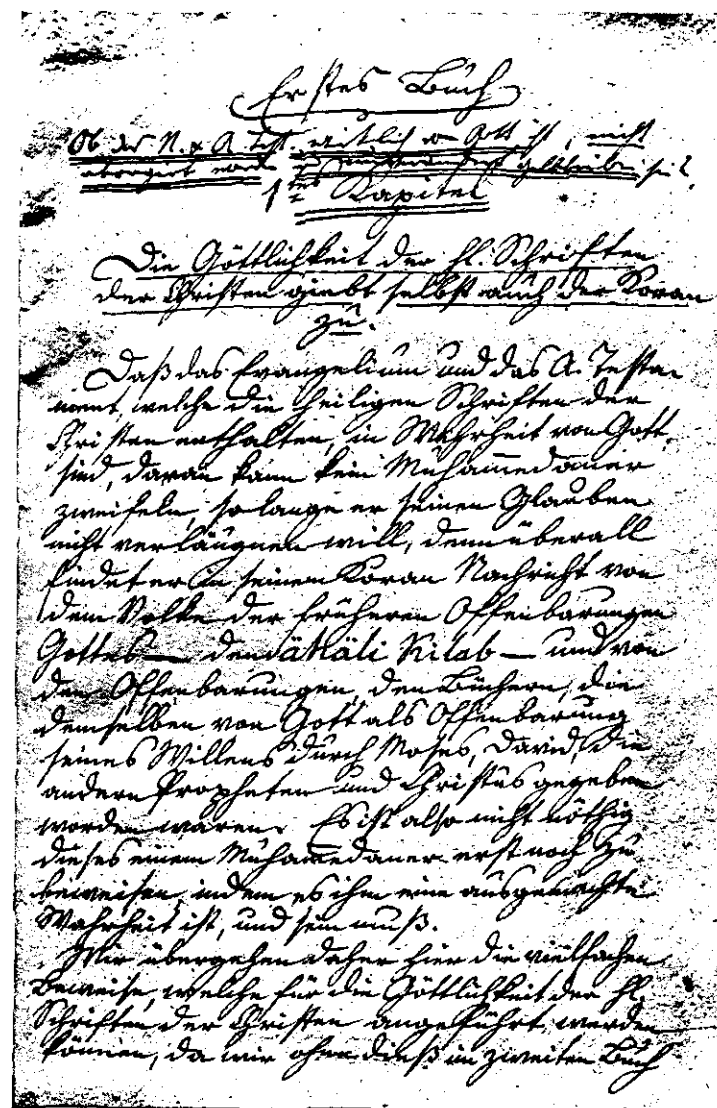 Erstes Buch
Ob das N. & A. Test. wirklich v. Gott ist, nicht
abrogirt worden u. unverändert geblieben sei.
1tes Kapitel
Die Göttlichkeit der hl. Schriften
der Christen giebt selbst auch der Koran
zu.
Daß das Evangelium und das A. Testa-
ment, welche die heiligen Schriften der
Christen enthalten, in Wahrheit von Gott
sind, daran kann kein Muhammedaner
zweifeln, so lange er seinen Glauben
nicht verläugnen will, denn überall
findet er in seinem Koran Nachricht von
dem Volke der früheren Offenbarungen
Gottes — den ähäli Kitab — und von
den Offenbarungen, den Büchern, die
demselben von Gott als Offenbarung
seines Willens durch Moses, David, die
andern Propheten und Christus gegeben
worden waren. Es ist also nicht nöthig
dieses einem Muhammedaner erst noch zu
beweisen, indem es ihm eine ausgemachte
Wahrheit ist, und sein muß.
Wir übergehen daher hier die vielfachen
Beweise, welche für die Göttlichkeit der hl.
Schriften der Christen angeführt werden
können, da wir ohne dieß im zweiten Buch